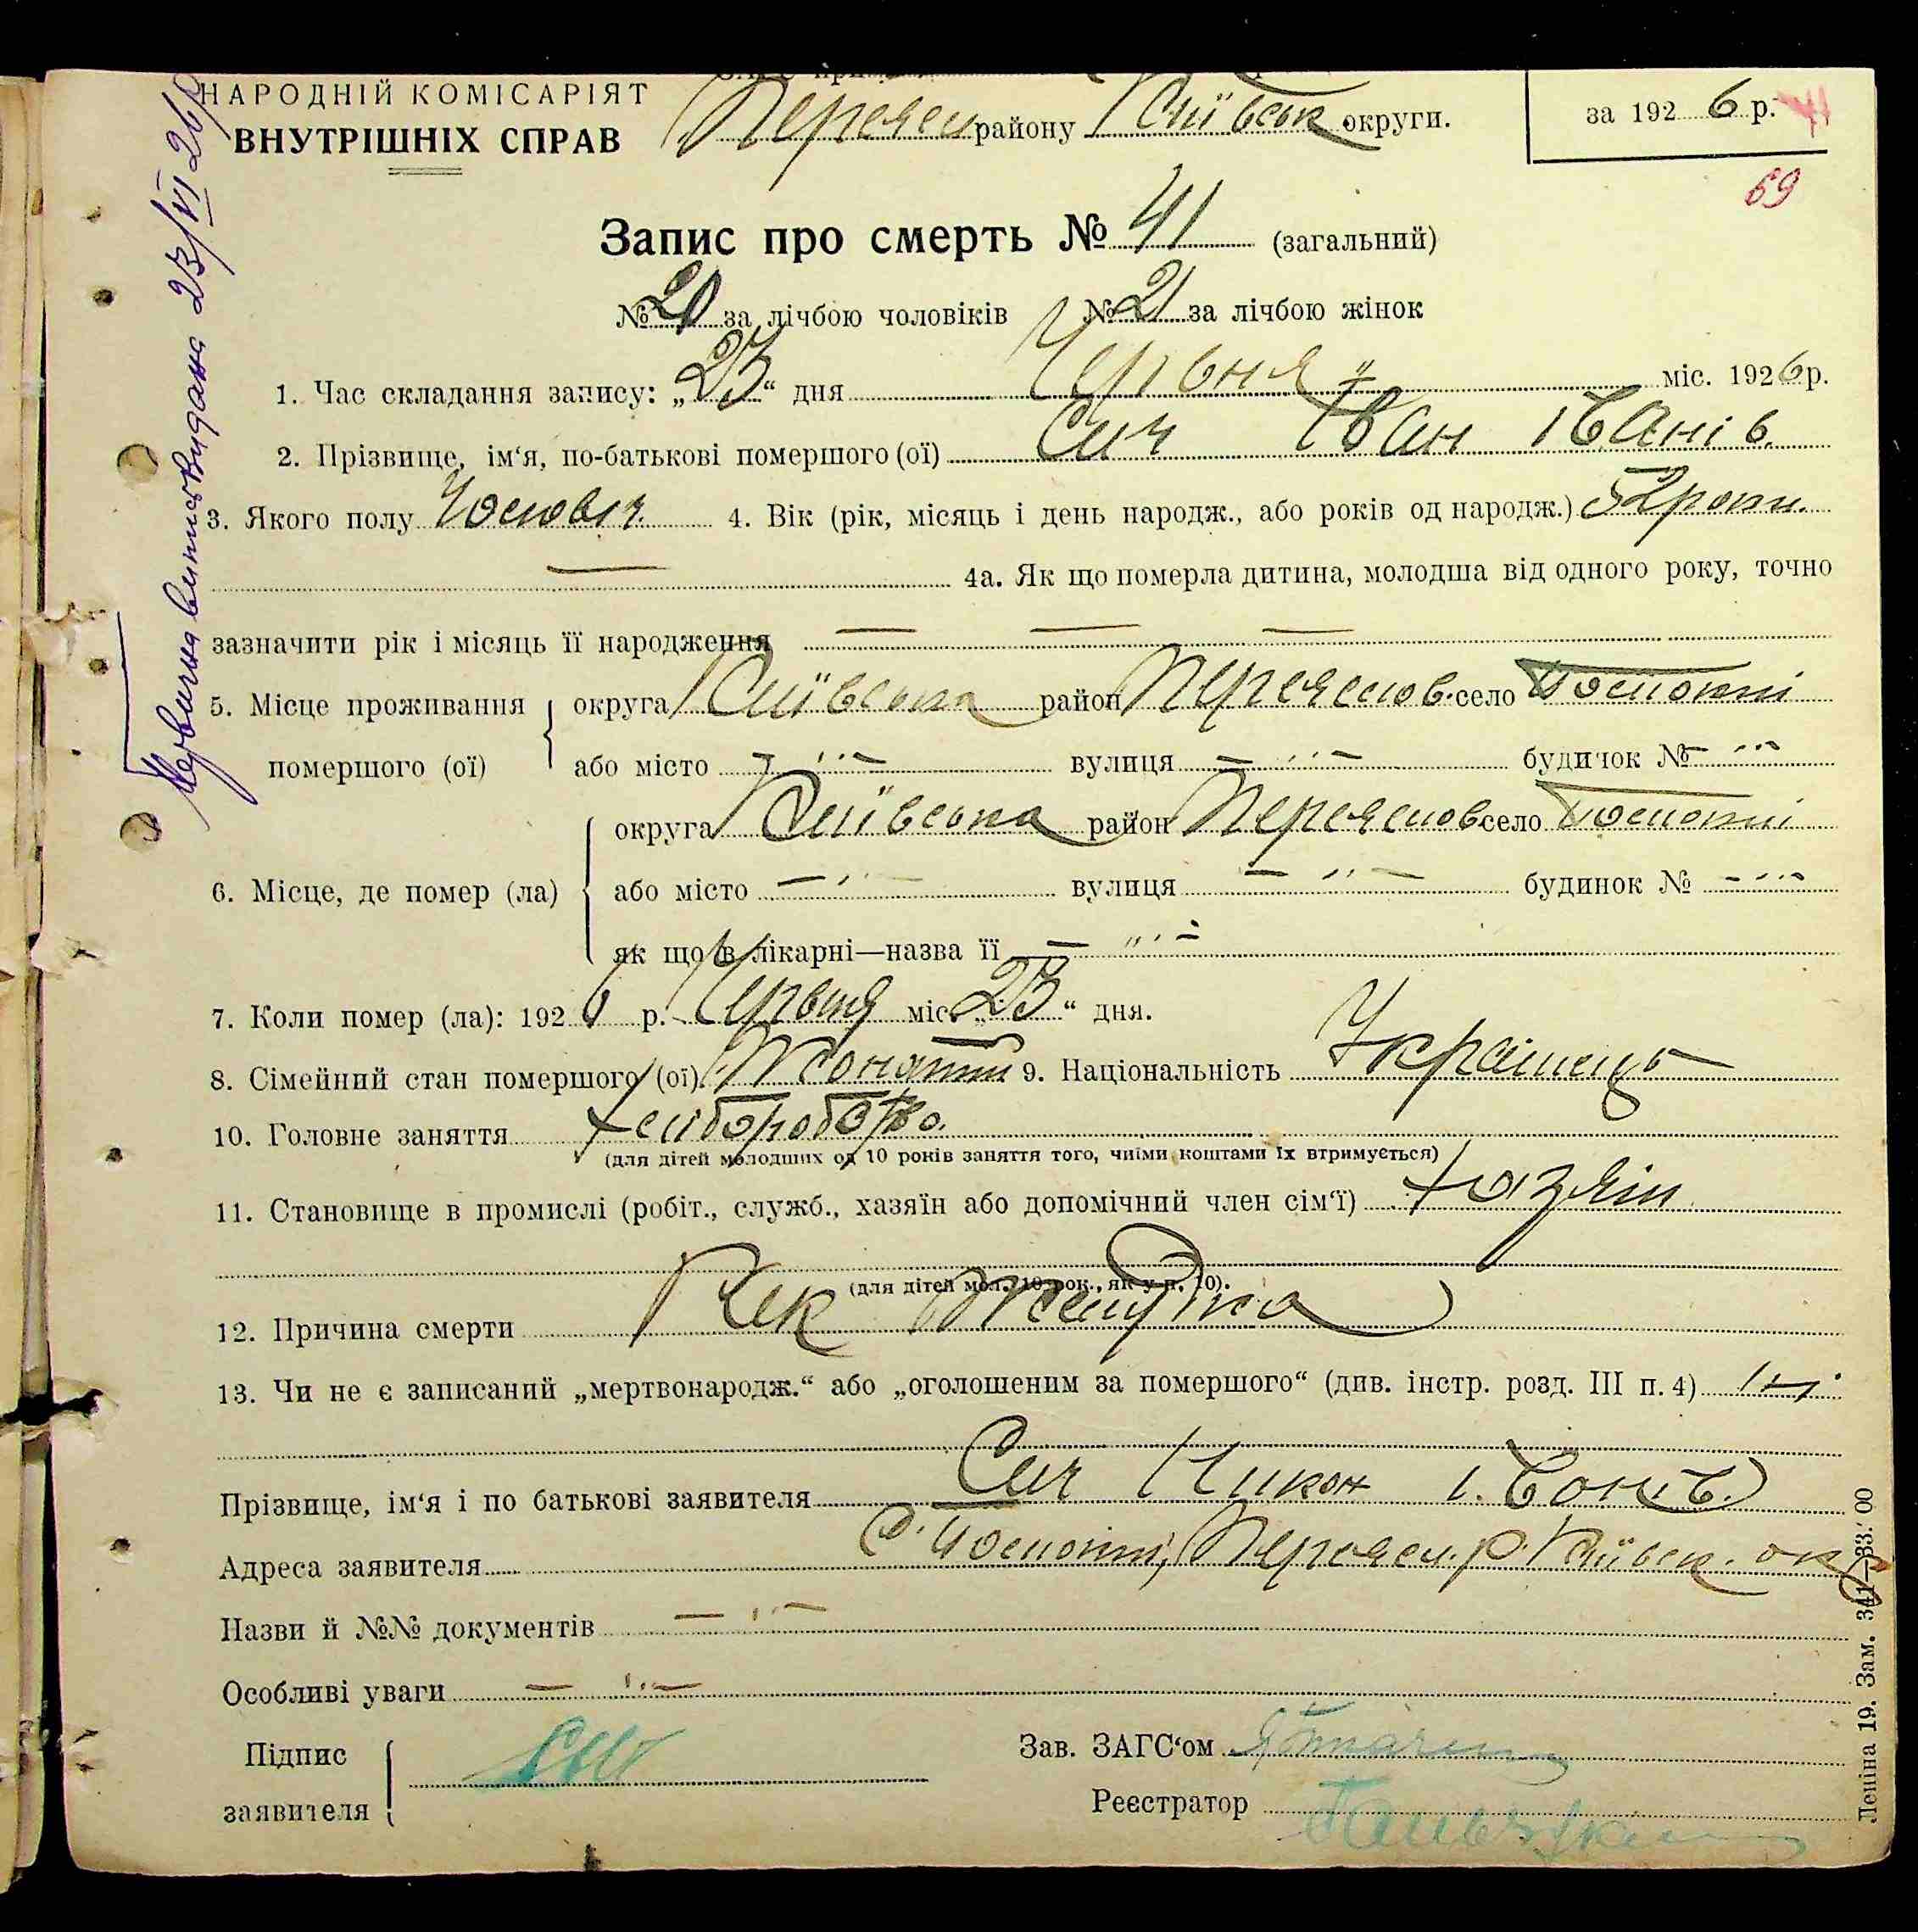 НАРОДНІЙ КОМІСАРІЯТ
ВНУТРІШНІХ СПРАВ
Переясл району Київськ округи.
за 1926 р.
69
Запис про смерть № 41 (загальний)
№ 20 за лічбою чоловіків № 21 за лічбою жінок
1. Час складання запису: „23“ дня Червня міс. 1926 р.
2. Прізвище, ім‘я, по-батькові помершого (ої) Сич Іван Іванів.
3. Якого полу Чоловіч. 4. Вік (рік, місяць і день народж., або років од народж.) 52 роки.
4а. Як що померла дитина, молодша від одного року, точно
зазначити рік і місяць її народження — — —
5. Місце проживання помершого (ої) округа Київська район Переяслов. село
або місто вулиця будинок №
6. Місце, де помер (ла) округа Київська район Переяслов село
або місто вулиця будинок №
як що в лікарні—назва її
7. Коли помер (ла): 1926 р. Червня міс. „23“ дня.
8. Сімейний стан помершого (ої) Жонатий 9. Національність Українець
10. Головне заняття Хліборобство.
(для дітей молодших од 10 років заняття того, чиїми коштами їх втримується)
11. Становище в промислі (робіт., служб., хазяїн або допомічний член сім‘ї) Хазяїн
(для дітей мол. 10 рок., як у п. 10).
12. Причина смерти Рак Желудка
13. Чи не є записаний „мертвонародж.“ або „оголошеним за помершого“ (див. інстр. розд. III п. 4) Ні.
Прізвище, ім‘я і по батькові заявителя Сич Никон
Адреса заявителя Переясл. р. Київськ. окр
Назви й №№ документів
Особливі уваги
Підпис заявителя Сич
Зав. ЗАГС‘ом
Реєстратор
Первична виписка видана 23/VI 26 р
Леніна 19. Зам. 341—33.